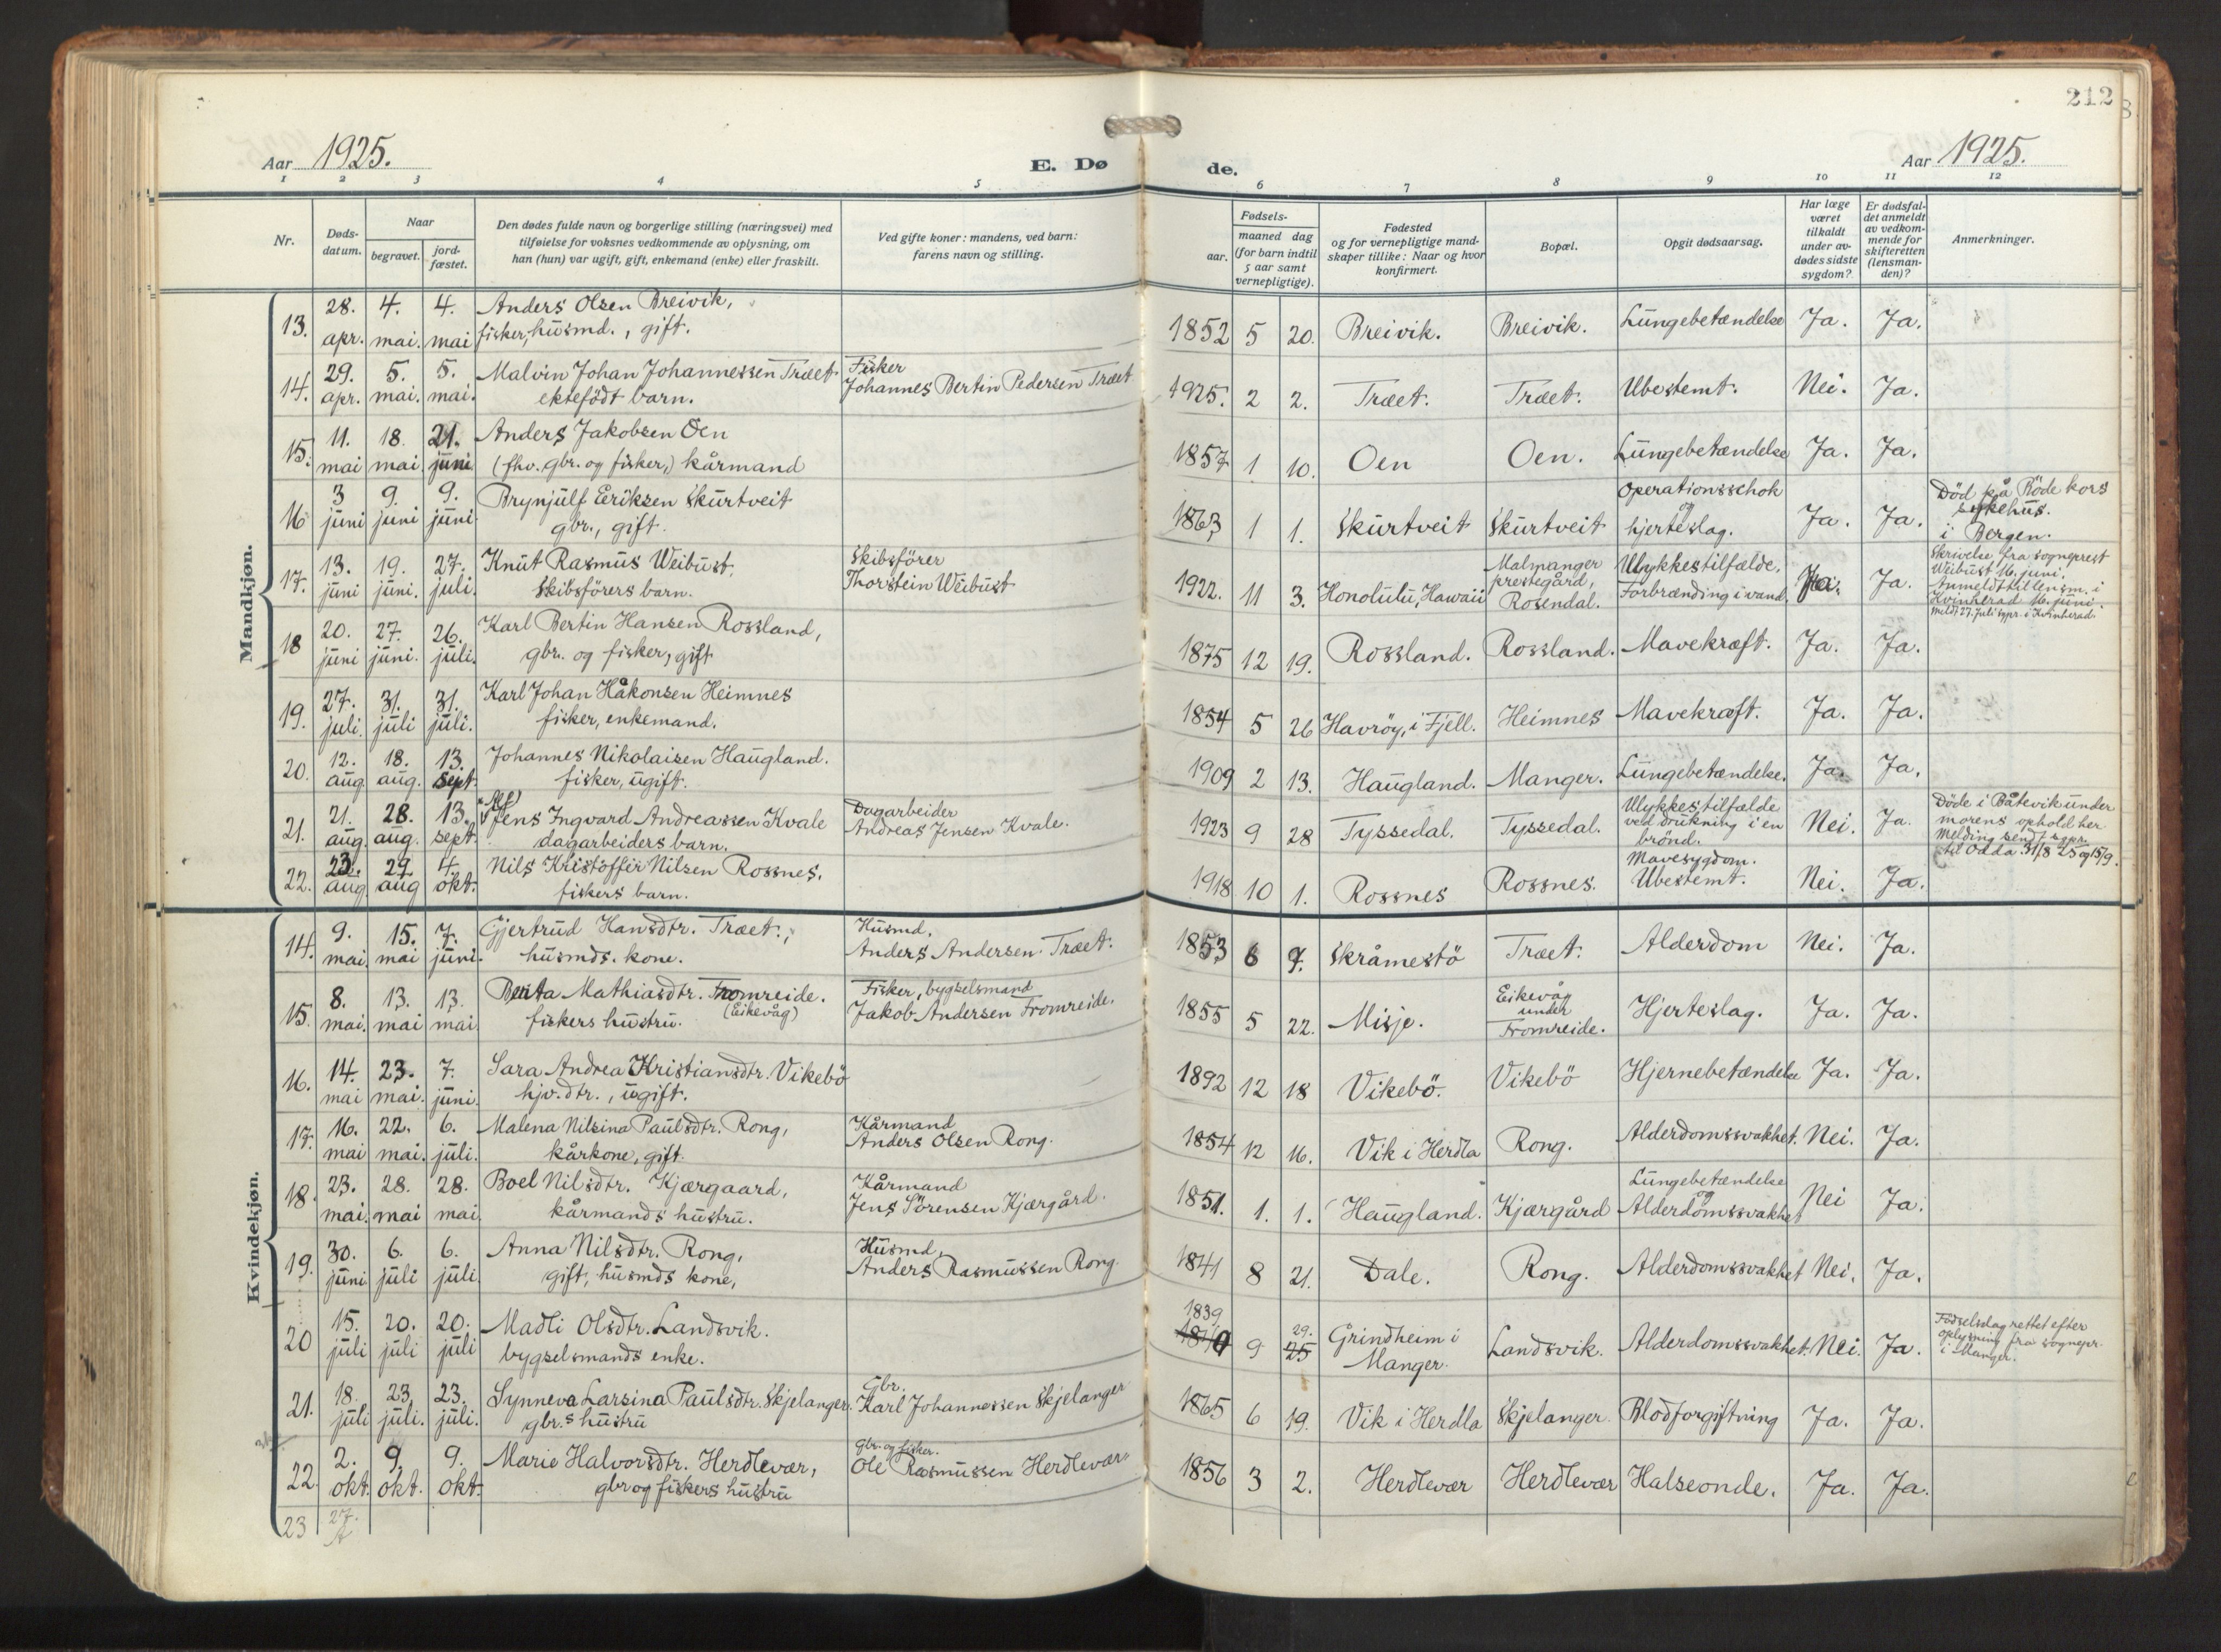 212
Aar 1925.
E. Dø
de.
Aar 1925.
1 2 3 4 5 6 7 8 9 10 11 12
Nr.
Døds-
datum.
Naar
begravet.
jord-
fæstet.
Den dødes fulde navn og borgerlige stilling (næringsvei) med
tilføielse for voksnes vedkommende av oplysning, om
han (hun) var ugift, gift, enkemand (enke) eller fraskilt.
Ved gifte koner: mandens, ved barn:
farens navn og stilling.
Fødsels-
aar.
maaned dag
(for barn indtil
5 aar samt
vernepligtige).
Fødested
og for vernepligtige mand-
skaper tillike: Naar og hvor
konfirmert.
Bopæl.
Opgit dødsaarsag.
Har læge
været
tilkaldt
under av-
dødes sidste
sygdom?
Er dødsfal-
det anmeldt
av vedkom-
mende for
skifteretten
(lensman-
den)?
Anmerkninger.
Mandkjøn.
13. 28. apr. 4. mai. 4. mai Anders Olsen Breivik,
fisker, husmd., gift.
1852 5 20. Breivik. Breivik. Lungebetændelse Ja. Ja.
14. 29. apr. 5. mai. 5. mai. Malvin Johan Johannessen Træet.
ektefödt barn.
Fisker
Johannes Bertin Pedersen Træet
1925. 2 2. Træet. Træet. Ubestemt. Nei. Ja.
15. 11. mai 18. mai. 21. juni Anders Jakobsen Oen
(fhv. gbr. og fisker,) kårmand
1857 1 10. Oen Oen. Lungebetændelse Ja. Ja.
16 3 juni 9. juni 9. juni. Brynjulf Eriksen Skurtveit
gbr., gift.
1863 1 1. Skurtveit Skurtveit Operationsschok
og
hjerteslag.
Ja. Ja. Död på Röde kors
sykehus.
i Bergen.
17. 13. juni 19. juni. 27. juli. Knut Rasmus Weibust,
Skibsförers barn.
Skibsförer
Thorstein Weibust
1922. 11 3. Honolulu, Hawaii Malmanger
prestegård,
Rosendal.
Ulykkestilfælde.
Forbrænding i vand.
Ja. Ja. Skrivelse fra sogneprest
Weibust 16. juni.
Anmeldt til lensm. i
Kvinherad 16. juni.
Meldt 27. juli sgpr. i Kvinherad.
18 20. juni 27. juni. 26. juli. Karl Bertin Hansen Rossland,
gbr. og fisker, gift
1875 12 19. Rossland. Rossland. Mavekræft. Ja. Ja.
19. 27. juli. 31. juli 31. juli. Karl Johan Håkonsen Heimnes
fisker, enkemand.
1854 5 26 Havröy, i Fjell. Heimnes Mavekræft. Ja. Ja.
20. 12. aug. 18. aug. 13. sept. Johannes Nikolaisen Haugland.
fisker, ugift.
1909 2 13. Haugland. Manger. Lungebetændelse. Ja. Ja.
21. 21. aug. 28. aug. 13. sept. Jens Ingvard Andreassen Kvale
dagarbeiders barn.
Dagarbeider
Andreas Jensen Kvale.
1923 9 28 Tyssedal. Tyssedal. Ulykkestilfælde
ved drukning i en
brönd.
Nei. Ja. Döde i Båtevik under
morens ophold her.
Melding sendt sgpr.
til Odda 31/8 25 og 15/9.
22. 23. aug. 29 aug 4. okt. Nils Kristoffer Nilsen Rossnes.
fiskers barn.
1918 10 1. Rossnes Rossnes. Mavesygdom.
Ubestemt.
Nei. Ja.
Kvindekjøn.
14. 9. mai. 15. mai 7. juni. Gjertrud Hansdtr. Træet.,
husmds. kone.
Husmd.
Anders Andersen Træet.
1853 6 7. Skråmestö Træet. Alderdom Nei. Ja.
15. 8. mai. 13. mai 13. mai Berta Mathiasdtr. Fromreide.
fiskers hustru. (Eikevåg)
Fisker, bygselsmand
Jakob Andersen Fromreide.
1855 5 22. Misje. Eikevåg
under
Fromreide.
Hjerteslag. Ja. Ja.
16. 14. mai 23. mai. 7. juni. Sara Andrea Kristiansdtr. Vikebö
hjv. dtr., ugift.
1892 12 18 Vikebö. Vikebö Hjernebetændelse Ja. Ja.
17. 16. mai 22. mai. 6. juli. Malena Nilsina Paulsdtr. Rong,
kårkone, gift.
Kårmand
Anders Olsen Rong.
1854 12 16. Vik i Herdla Rong. Alderdomssvakhet. Nei. Ja.
18. 23. mai. 28. mai 28. mai. Boel Nilsdtr. Kjærgaard,
kårmands hustru.
Kårmand
Jens Sörensen Kjærgård.
1851. 1. 1. Haugland. Kjærgård Lungebetændelse
og
Alderdomssvakhet
Nei Ja.
19. 30. juni 6. juli 6. juli. Anna Nilsdtr. Rong,
gift, husmds kone,
Husmd.
Anders Rasmussen Rong.
1841 8 21. Dale. Rong. Alderdomssvakhet Nei. Ja.
20 15. juli 20. juli 20. juli Madli Olsdtr. Landsvik.
bygselsmands enke.
1839 9 29. 25 Grindheim i
Manger.
Landsvik. Alderdomssvakhet. Nei. Ja. Födselsdag rettet efter
oplysning fra sognepr.
i Manger.
21. 18. juli 23. juli. 23. juli. Synneva Larsina Paulsdtr. Skjelanger.
gbr.s hustru
Gbr.
Karl Johannessen Skjelanger
1865 6 19. Vik i Herdla Skjelanger. Blodforgiftning Ja. Ja.
22. 2. okt. 9. okt. 9. okt. Marie Halvorsdtr. Herdlevær,
gbr og fiskers hustru
Gbr. og fisker.
Ole Rasmussen Herdlevær.
1856 3 2. Herdlevær Herdlevær Halseonde. Ja. Ja.
23 27.